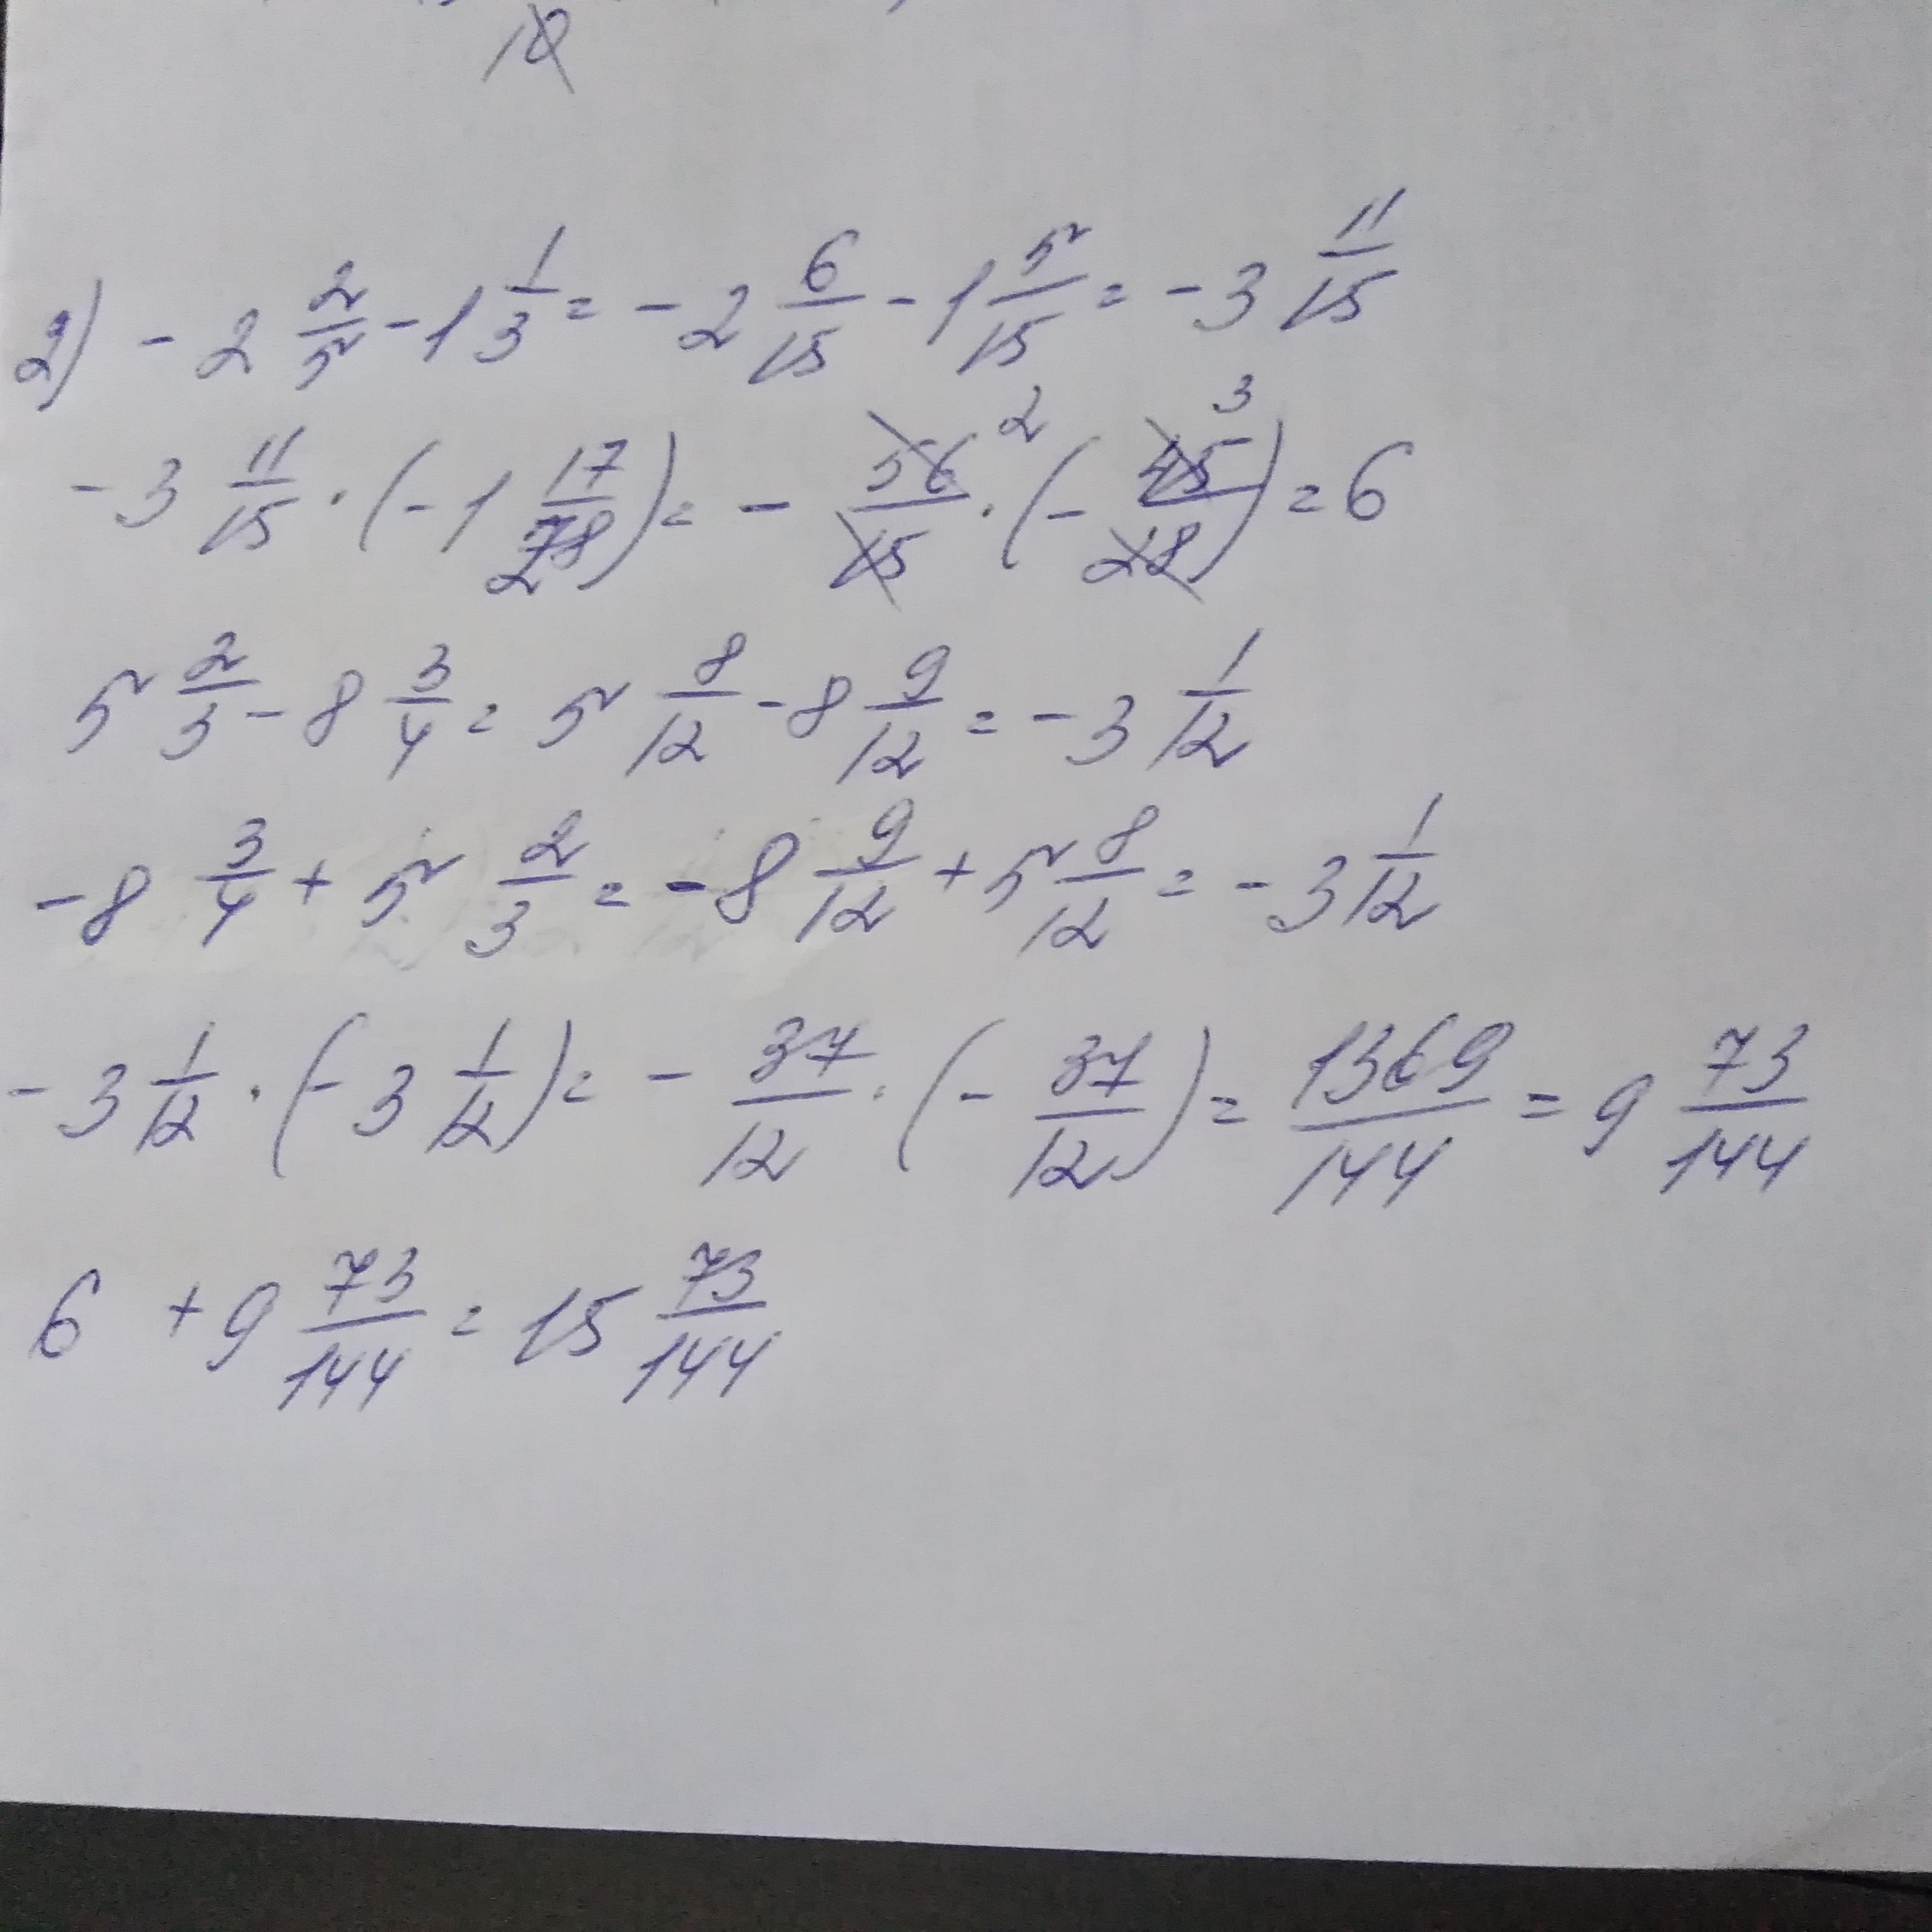 10
2) - 2 2/5 - 1 1/3 = - 2 6/15 - 1 5/15 = - 3 11/15
- 3 11/15 · (- 1 17/28) = - 56/15 2 · (- 45/28 3) = 6
5 2/3 - 8 3/4 = 5 8/12 - 8 9/12 = - 3 1/12
- 8 3/4 + 5 2/3 = - 8 9/12 + 5 8/12 = - 3 1/12
- 3 1/12 · (- 3 1/12) = - 37/12 · (- 37/12) = 1369/144 = 9 73/144
6 + 9 73/144 = 15 73/144